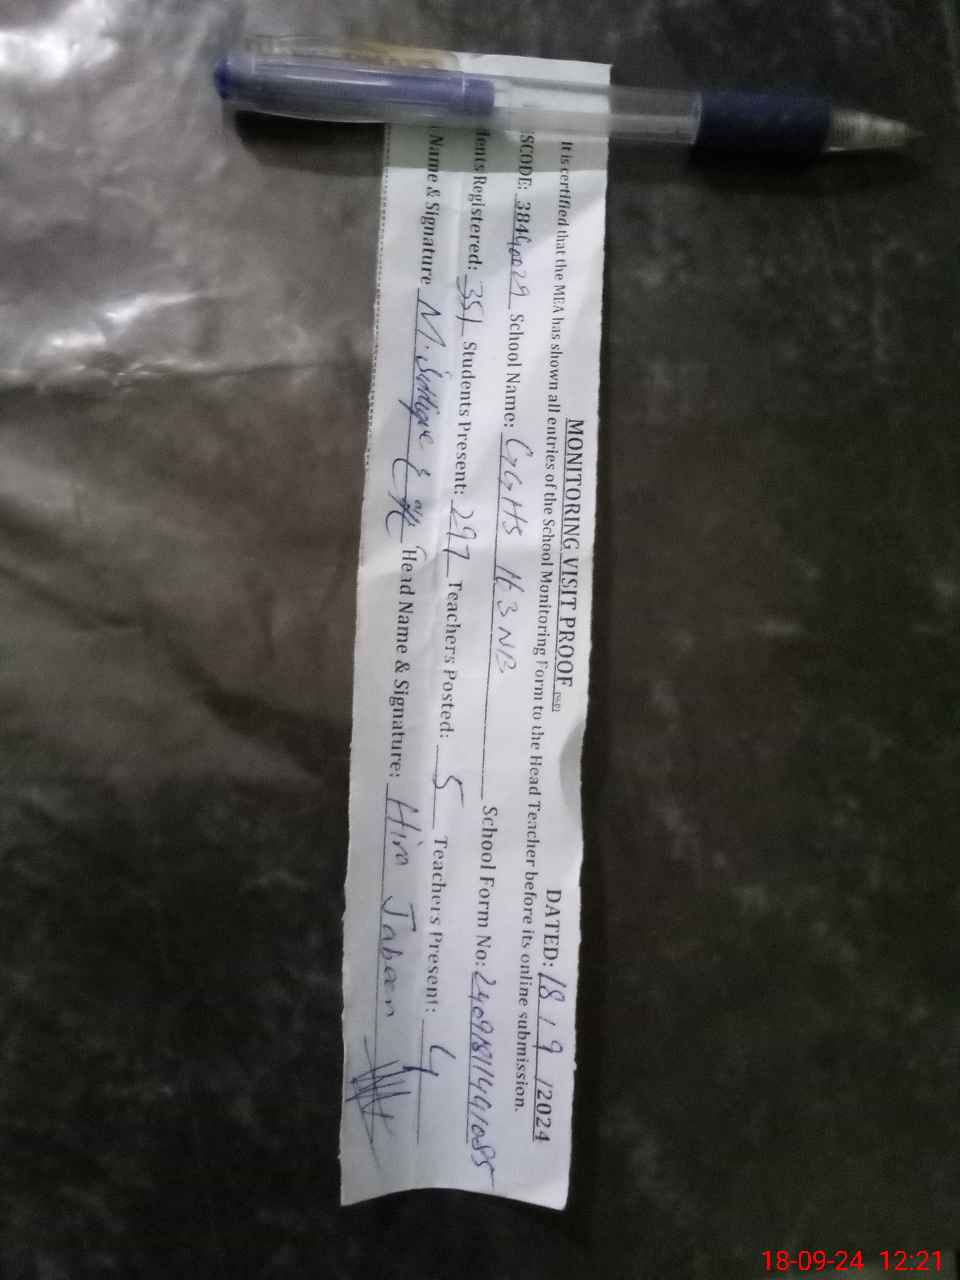 MONITORING VISIT PROOF DATED: 18 / 9 /2024
It is certified that the MEA has shown all entries of the School Monitoring Form to the Head Teacher before its online submission.
SCODE: 38440029 School Name: GGHS 113NB School Form No: 24091811491085
dents Registered: 351 Students Present: 297 Teachers Posted: 5 Teachers Present: 4
Name & Signature M. Head Name & Signature: Hira Jabeen
18-09-24 12:21